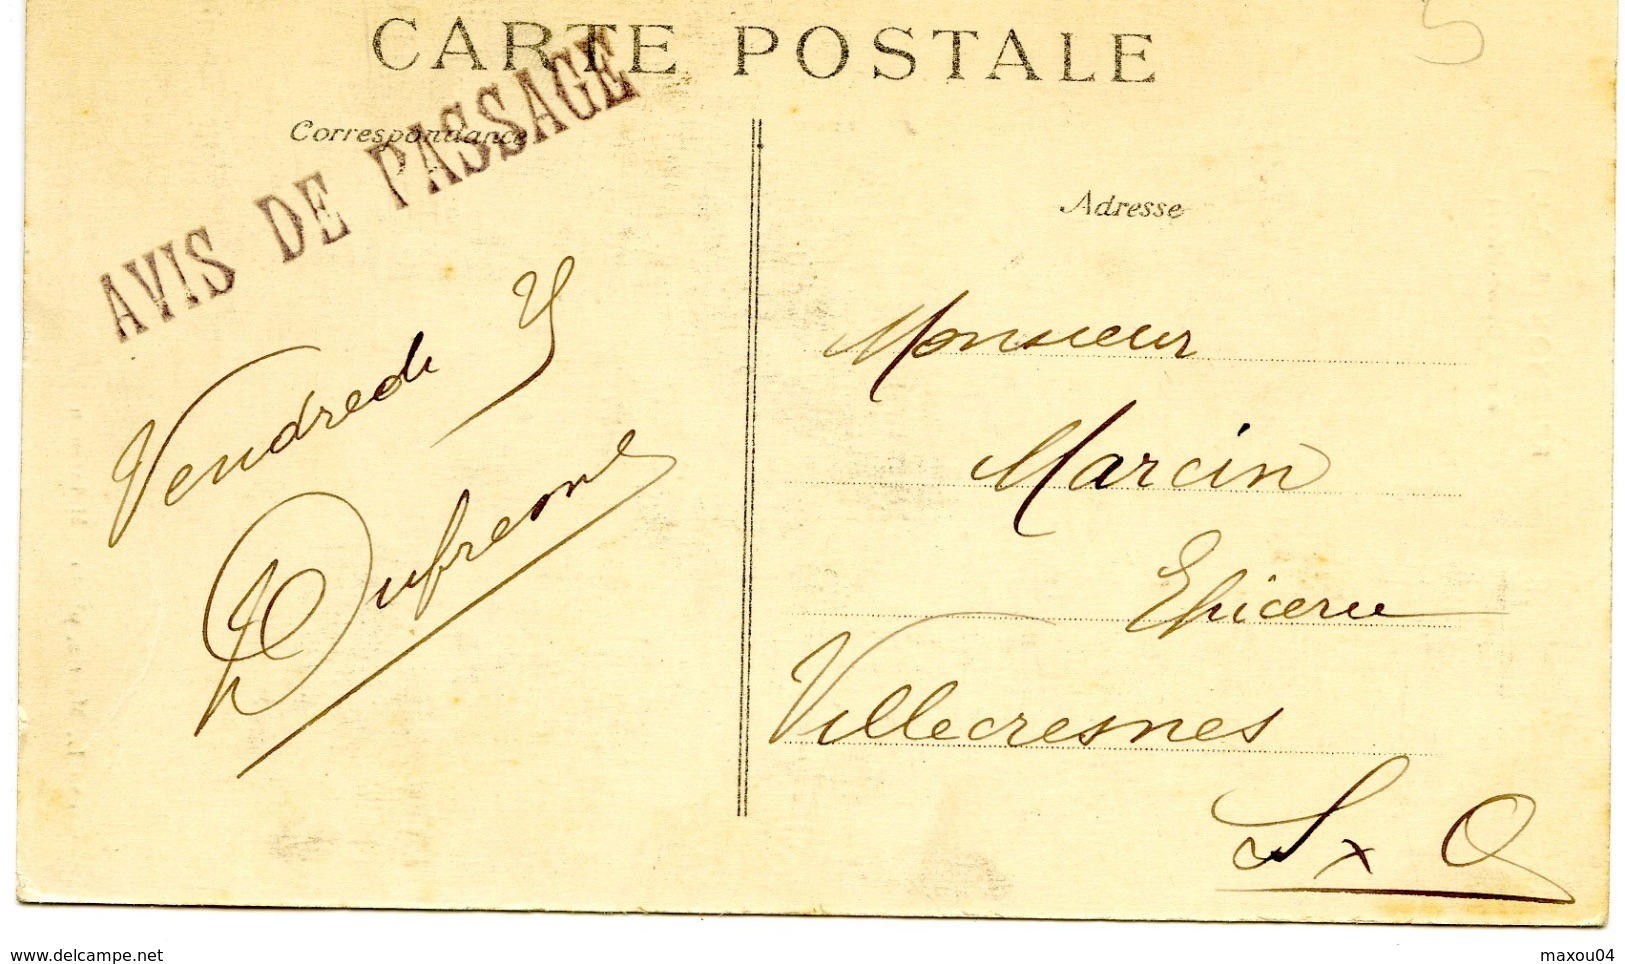 CARTE POSTALE
5
Correspondance
AVIS DE PASSAGE
Adresse
Vendredi
Dufresne
Monsieur
Marcin
Epicerie
Villecresnes
S x O
www.delcampe.net
maxou04